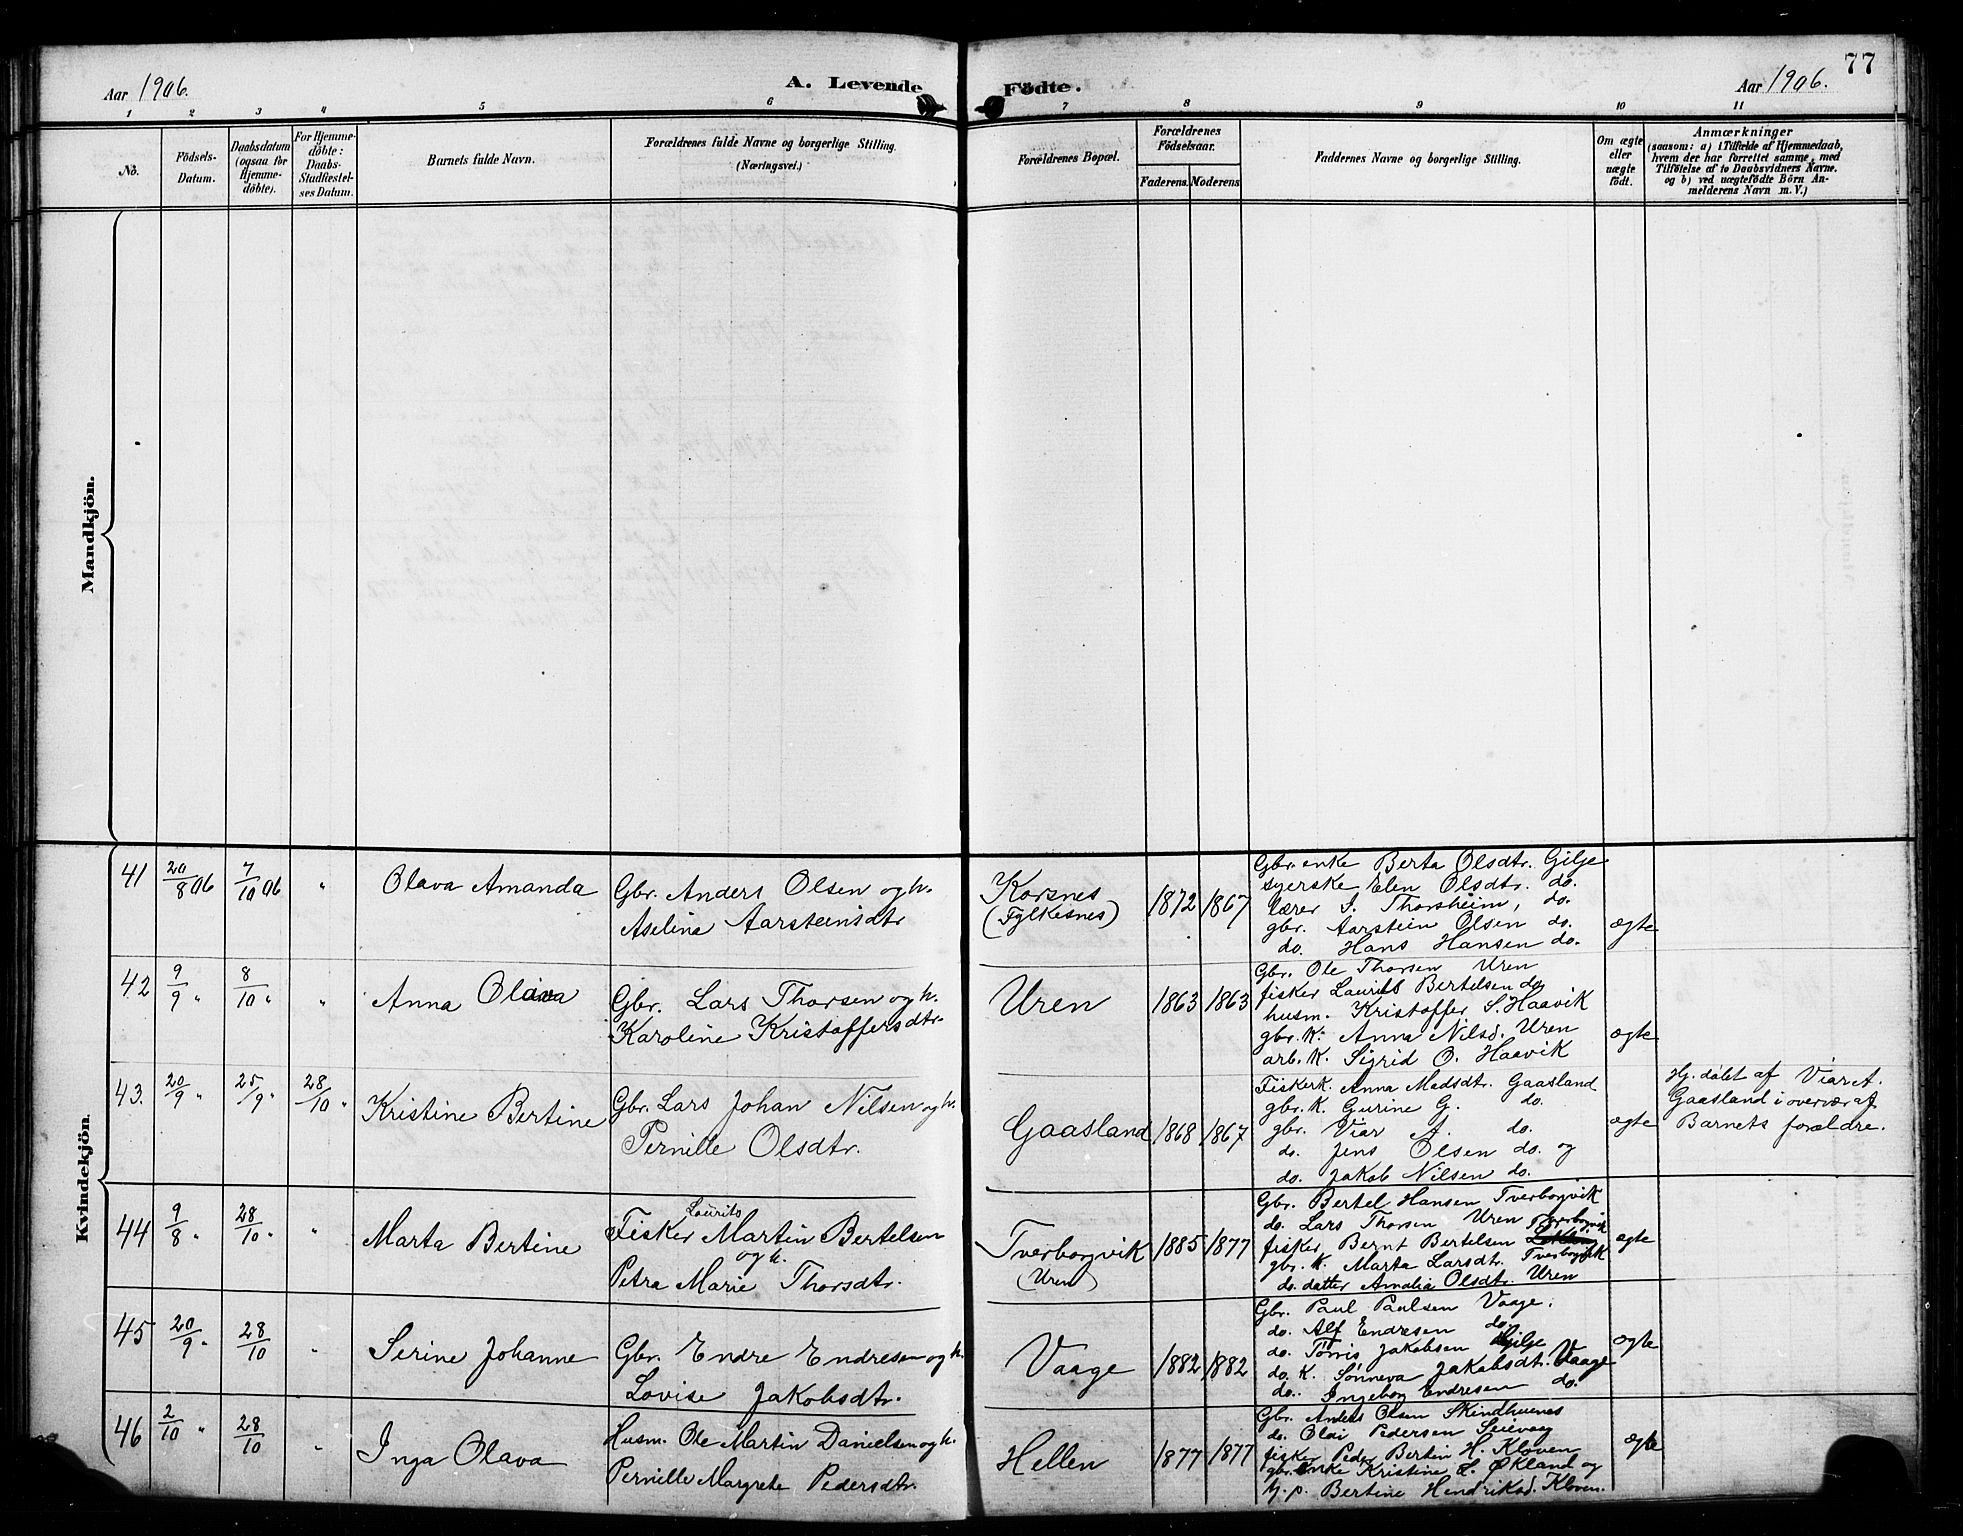 77
Aar 1906.
A. Levende
Födte.
Aar 1906.
1 2 3 4 5 6 7 8 9 10 11
No.
Födsels-
Datum.
Daabsdatum
(ogsaa for
Hjemme-
döbte).
For Hjemme-
döbte:
Daabs-
Stadfæstel-
ses Datum.
Barnets fulde Navn.
Forældrenes fulde Navne og borgerlige Stilling.
(Næringsvei.)
Forældrenes Bopæl.
Forældrenes
Födselsaar.
Faderens. Moderens.
Faddernes Navne og borgerlige Stilling.
Om ægte
eller
uægte
födt.
Anmærkninger
(saasom: a) i Tilfælde af Hjemmedaab,
hvem der har forrettet samme, med
Tilföielse af to Daabsvidners Navne.
og b) ved uægtefödte Börn An-
melderens Navn m. V.)
Mandkjön.
Kvindekjön
41 20/8 06 7/10 06 " Olava Amanda
Gbr. Anders Olsen og h.
Aselina Aarsteinsdtr
Korsnes
(Fylkesnes)
1872 1867
Gbr. enke Berta Olsdtr. Gilje
syerske Elen Olsdtr. do.
lærer I. Thorsheim, do.
gbr. Aarstein Olsen do.
do. Hans Hansen do.
ægte
42 9/9 " 8/10 " " Anna Olava
Gbr. Lars Thorsen og h.
Karoline Kristoffersdtr.
Uren
1863 1863
Gbr. Ole Thorsen Uren
fisker Laurits Bertelsen do
husm. Kristoffer S. Haavik
gbr. k. Anna Nilsd. Uren
arb. k. Sigrid O. Haavik
ægte
43. 20/9 " 25/9 " 28/10 " Kristine Bertine
Gbr. Lars Johan Nilsen og h.
Pernille Olsdtr.
Gaasland
1868 1867
Fiskerk. Anna Madsdtr. Gaasland
gbr. k. Gurine G. do.
gbr. Viar A. do.
do. Jens Olsen do. og
do. Jakob Nilsen do.
ægte
Hj. döbt af Viar A.
Gaasland i overvær af
Barnets forældre.
44 9/8 " 28/10 " " Marta Bertine
Laurits
Fisker Martin Bertelsen
og h.
Petra Marie Thorsdtr.
Tverborgvik
(Uren)
1885 1877
Gbr. Bertel Hansen Tverborgvik
do. Lars Thorsen Uren
fisker Bernt Bertelsen Tverborgvik
gbr. k. Marta Larsdtr. Tverborgvik
do. datter Amalia Olsdtr. Uren
ægte
45 20/9 " 28/10 " Serine Johanne
Gbr. Endre Endresen og h.
Lovise Jakobsdtr.
Vaage
1882 1882
Gbr. Paul Paulsen Vaage.
do. Alf Endresen do.
do. Tørris Jakobsen Gilje
do. K. Sønneva Jakobsdtr. Vaage
do. Ingeborg Endresen do.
ægte
46 2/10 " 28/10 " Inga Olava
Husm. Ole Martin Danielsen og h.
Pernille Margrete Pedersdtr.
Hellen
1877 1877
Gbr. Anders Olsen Skindhuenes
do. Olai Pedersen Seievaag
fisker Peder Bertin H. Kloven
gbr. Enke Kristine L. Økland og
tj. p. Bertine Hendriksd. Kloven.
ægte